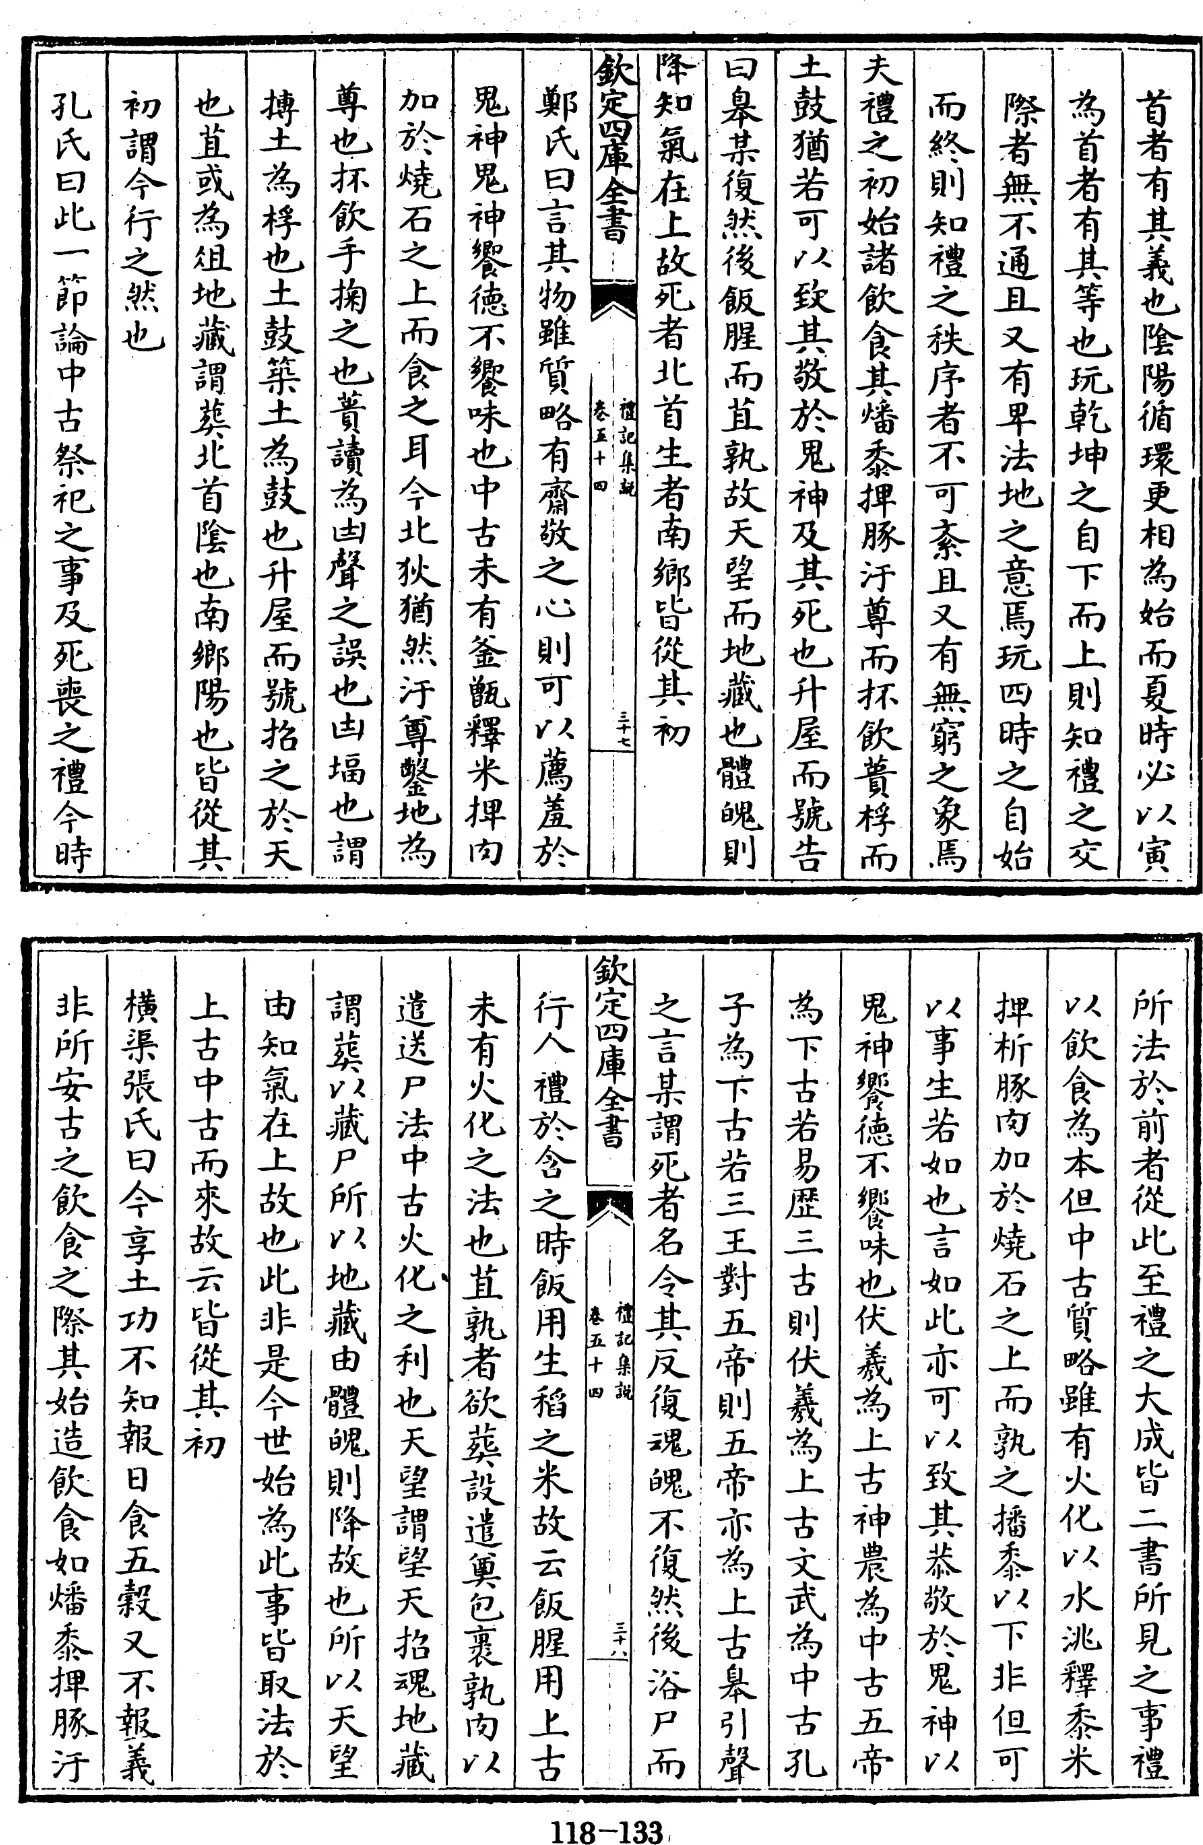 首者有其義也陰陽循環更相為始而夏時必以寅
為首者有其等也玩乾坤之自下而上則知禮之交
際者無不通且又有卑法地之意焉玩四時之自始
而終則知禮之秩序者不可紊且又有無窮之象焉
夫禮之初始諸飲食其燔黍捭豚汙尊而抔飲蕢桴而
土鼓猶若可以致其敬於鬼神及其死也升屋而號告
曰皋某復然後飯腥而苴孰故天望而地藏也體魄則
降知氣在上故死者北首生者南鄉皆從其初
欽定四庫全書
禮記集說
卷五十四
三十七
鄭氏曰言其物雖質略有齋敬之心則可以薦羞於
鬼神鬼神饗德不饗味也中古未有釜甑釋米捭肉
加於燒石之上而食之耳今北狄猶然汙尊鑿地為
尊也抔飲手掬之也蕢讀為凷聲之誤也凷堛也謂
摶土為桴也土鼓築土為鼓也升屋而號招之於天
也苴或為俎地藏謂葬北首陰也南鄉陽也皆從其
初謂今行之然也
孔氏曰此一節論中古祭祀之事及死喪之禮今時
所法於前者從此至禮之大成皆二書所見之事禮
以飲食為本但中古質略雖有火化以水洮釋黍米
捭析豚肉加於燒石之上而孰之播黍以下非但可
以事生若如也言如此亦可以致其恭敬於鬼神以
鬼神饗德不饗味也伏羲為上古神農為中古五帝
為下古若易歷三古則伏羲為上古文武為中古孔
子為下古若三王對五帝則五帝亦為上古皋引聲
之言某謂死者名令其反復魂魄不復然後浴尸而
欽定四庫全書
禮記集說
卷五十四
三十八
行人禮於含之時飯用生稻之米故云飯腥用上古
未有火化之法也苴孰者欲葬設遣奠包裹孰肉以
遣送尸法中古火化之利也天望謂望天招魂地藏
謂葬以藏尸所以地藏由體魄則降故也所以天望
由知氣在上故也此非是今世始為此事皆取法於
上古中古而來故云皆從其初
橫渠張氏曰今享土功不知報日食五穀又不報義
非所安古之飲食之際其始造飲食如燔黍捭豚汙
118-133